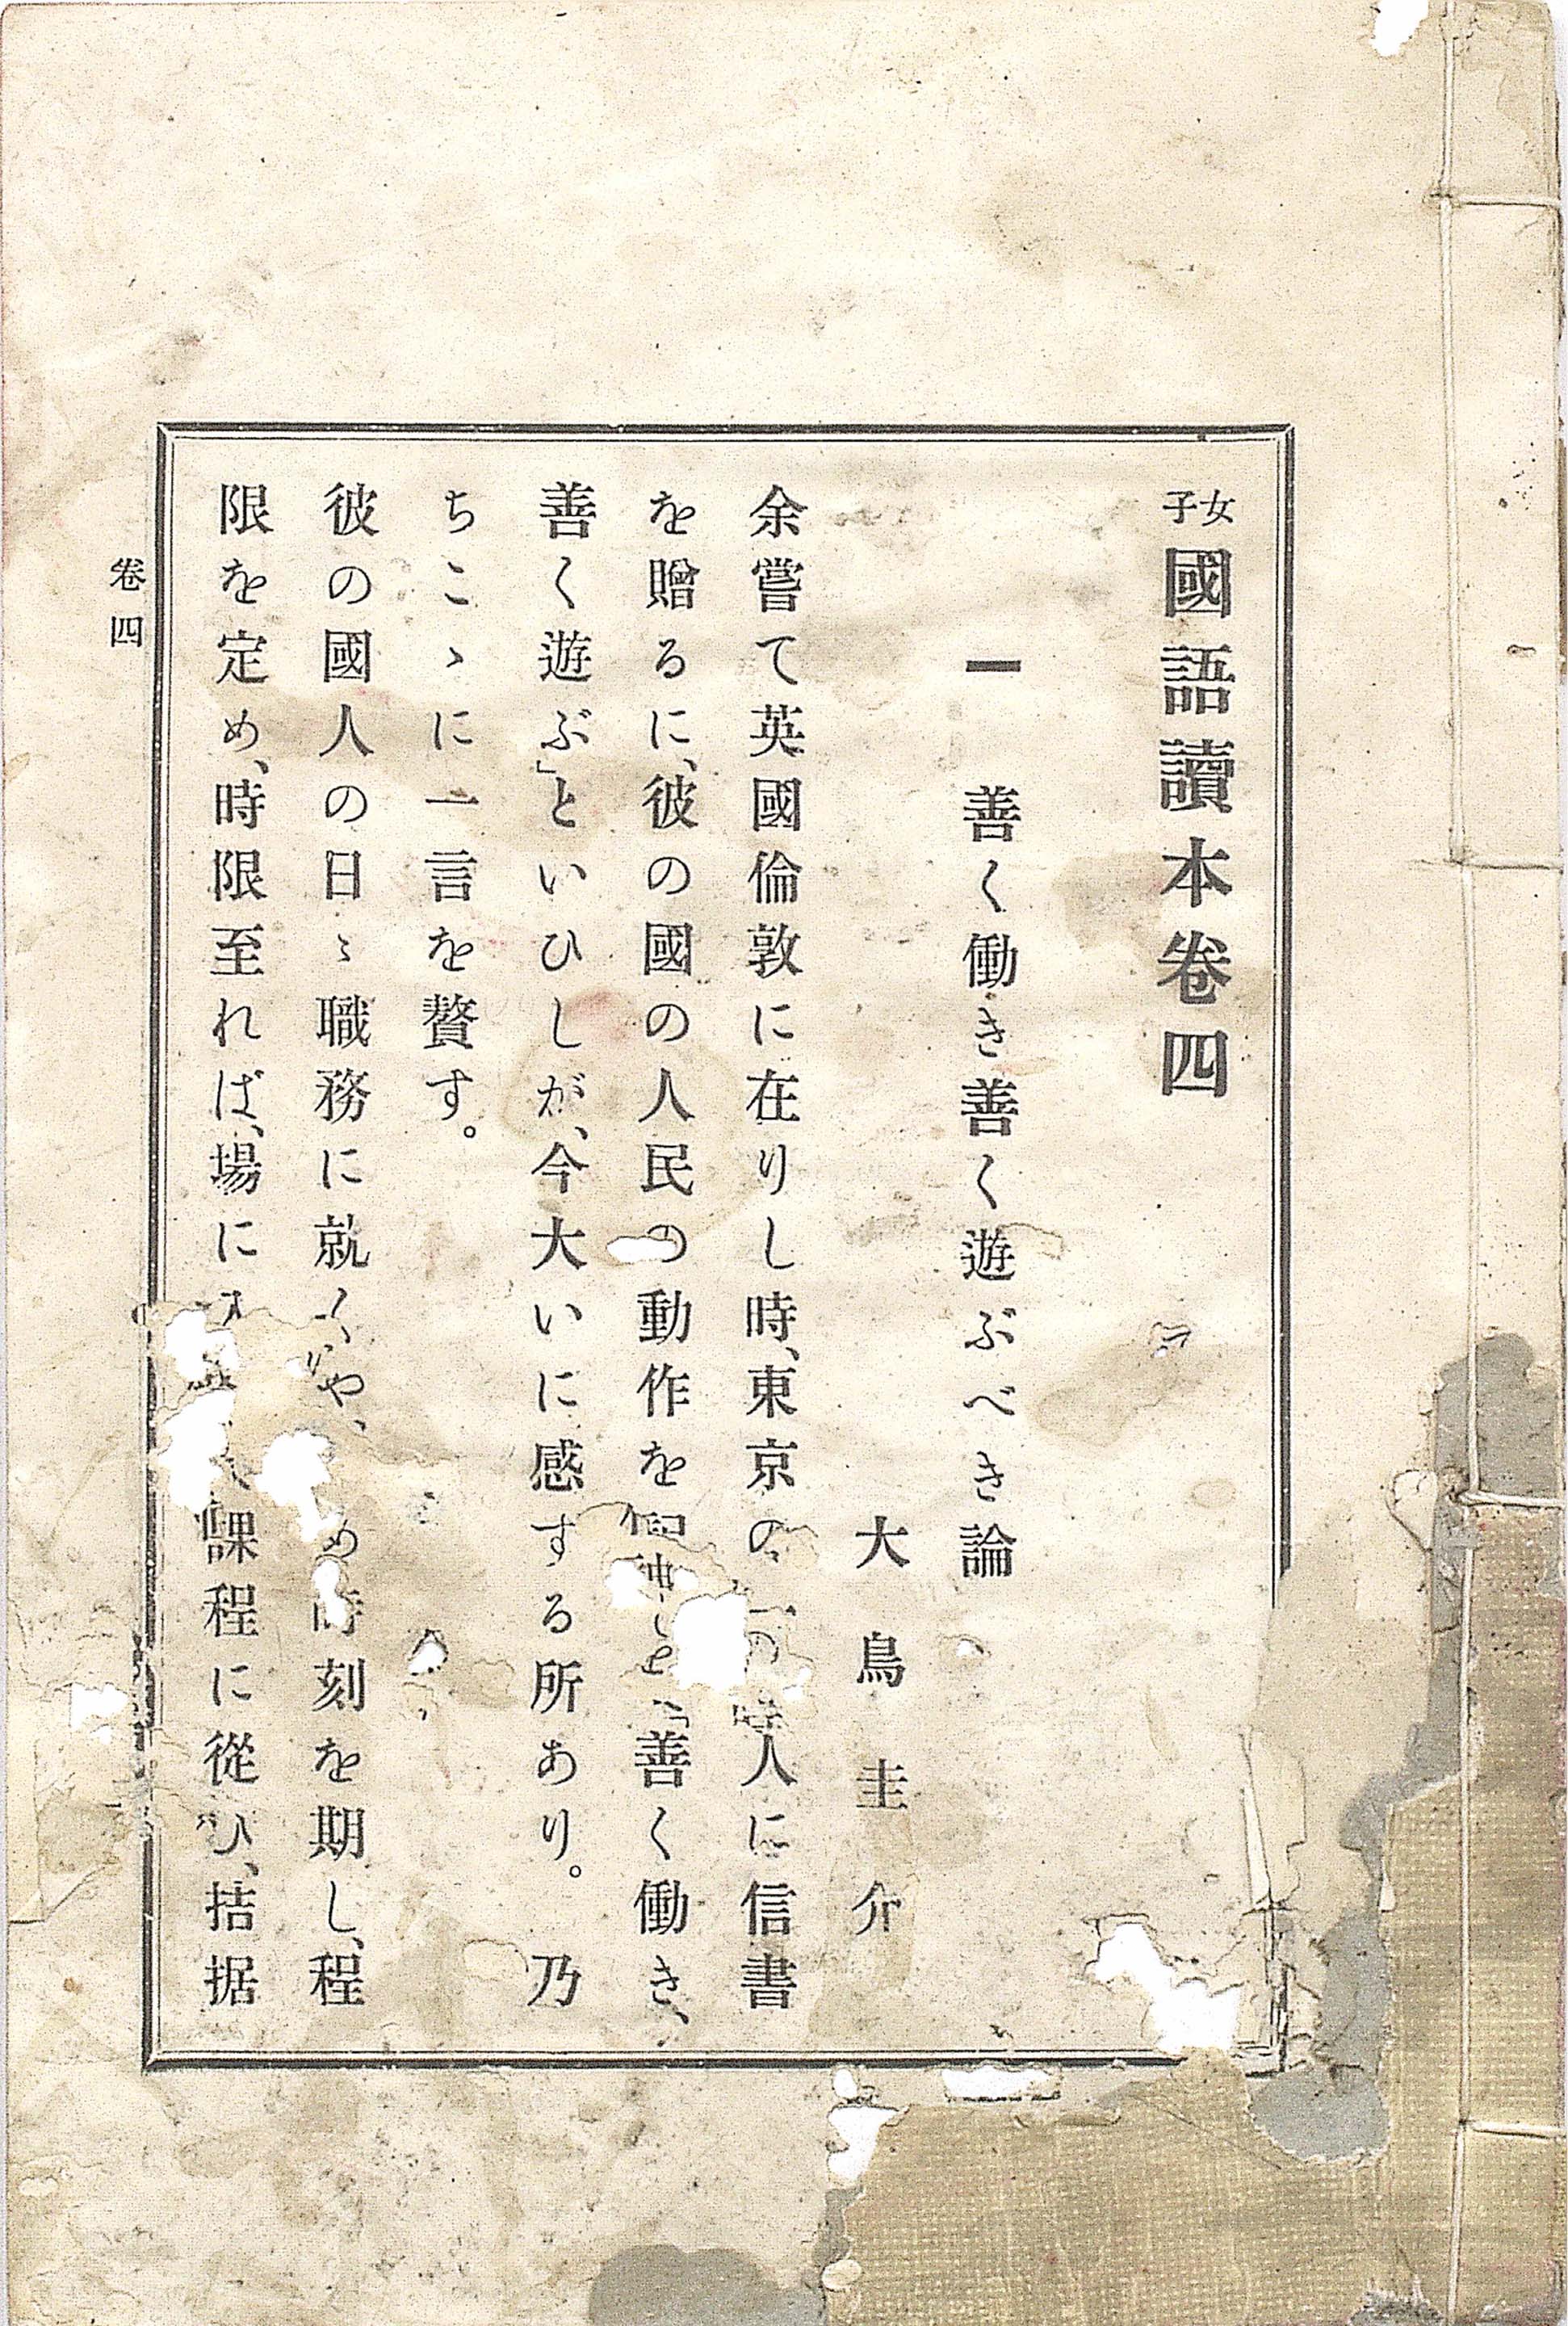 女子國語讀本卷四
一 善く働き善く遊ぶべき論
大鳥圭介
余嘗て英國倫敦に在りし時、東京の一の人に信書
を贈るに、彼の國の人民の動作を「善く働き、
善く遊ぶ」といひしが、今大いに感する所あり。乃
ちこゝに一言を贅す。
彼の國人の日〻職務に就くや、め時刻を期し、程
限を定め、時限至れば、場に課程に從ひ、拮据
卷四